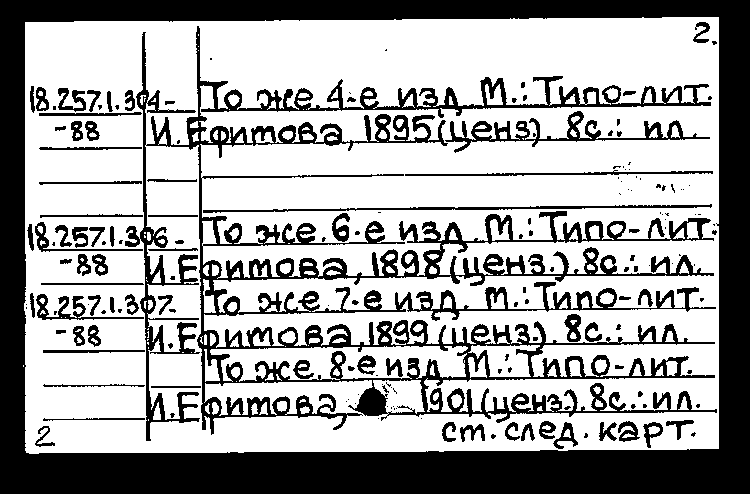 2.
18.257.1.304- То же. 4-е изд. М.: Типо-лит.
-88 И. Ефимова, 1895 (ценз). 8с.: ил.
18.257.1.306- То же. 6-е изд. М.: Типо-лит.
-88 И. Ефимова, 1898 (ценз.). 8с.: ил.
18.257.1.307- То же. 7-е изд. М.: Типо-лит.
-88 И. Ефимова, 1899 (ценз.). 8с.: ил.
То же. 8-е изд. М.: Типо-лит.
И. Ефимова, 1901 (ценз.). 8с.: ил.
2 ст. след. карт.